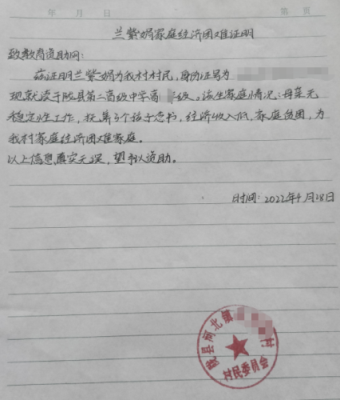 年 月 日
第 页
兰紫娟家庭经济困难证明
致教育资助网：
兹证明兰紫娟为我村村民，身份证号为
现就读于陇县第二高级中学高 级，该生家庭情况：母亲无
稳定性工作，抚养3个孩子念书，经济收入低，家庭贫困，为
我村家庭经济困难家庭。
以上信息属实无误，望予以资助。
时间：2022年9月28日
陇县河北镇 村
村民委员会